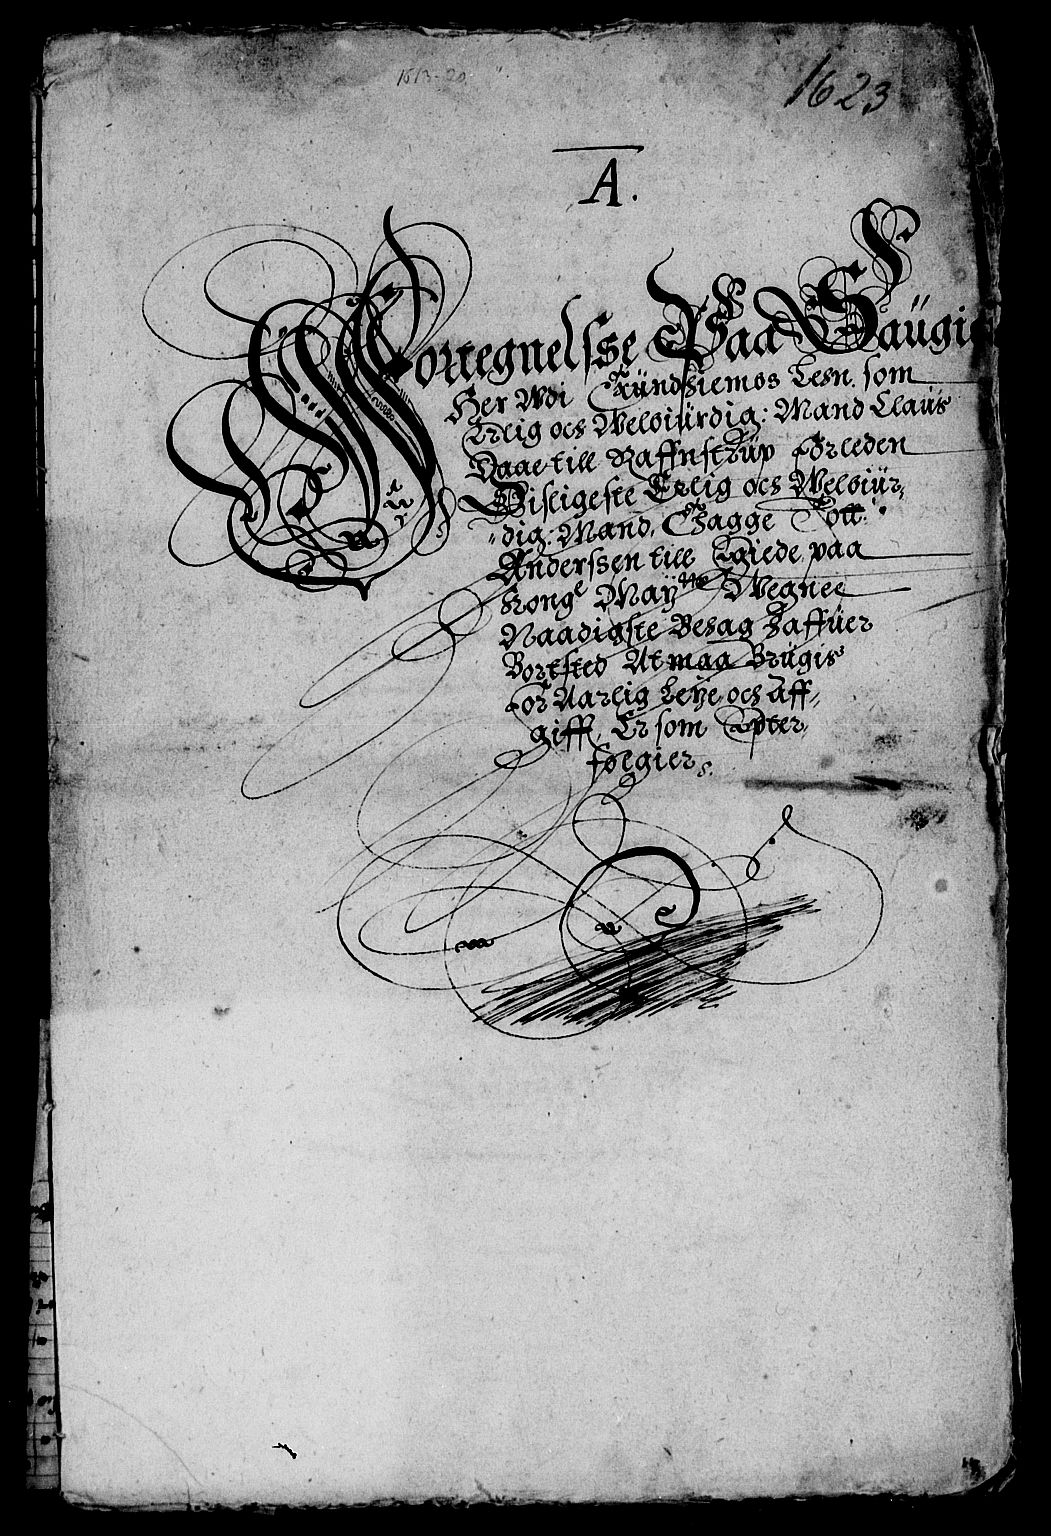 1613-20
1623
A.
Fortegnelsse Paa Saugie
Her Wdi Trundhiemos Lehn. som
Erlig och Welbiürdig: Mand Claüs
Daae till Raffnstrup Forleden
Disligeste Erlig och Welbiür,
dig: Mand, Tagge Tott:
Anderssen till Egiede paa
Kong: May:ttz Wegnee
Naadigste Behag haffuer
Bortsted At maa Brügis
For Aarlig Leye och Aff,,
gifft, Er som Epter,
følgier.